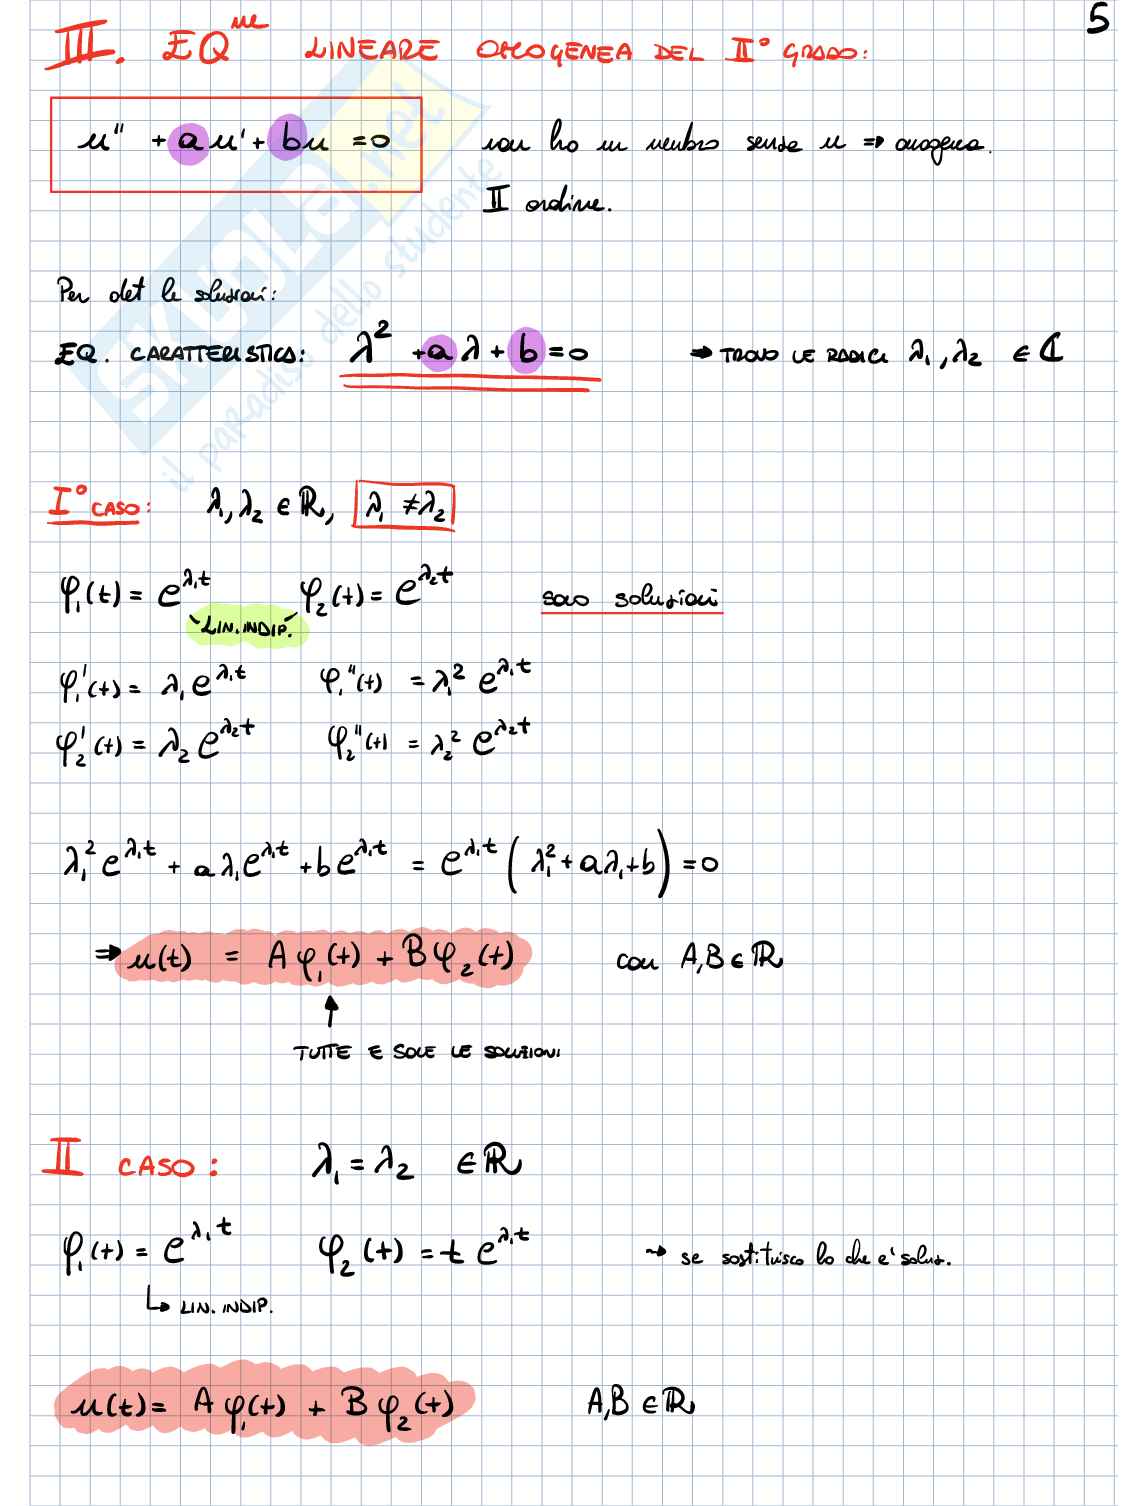 5
III. EQ^ne LINEARE OMOGENEA DEL II° GRADO:
u'' + a u' + b u = 0 non ho un membro senza u ⇒ omogenea.
II ordine.
Per det le soluzioni:
EQ. CARATTERISTICA: λ² + a λ + b = 0 → TROVO LE RADICI λ₁, λ₂ ∈ ℂ
I° CASO: λ₁, λ₂ ∈ ℝ, λ₁ ≠ λ₂
φ₁(t) = e^{λ₁t} φ₂(t) = e^{λ₂t} sono soluzioni
LIN. INDIP.
φ₁'(t) = λ₁ e^{λ₁t} φ₁''(t) = λ₁² e^{λ₁t}
φ₂'(t) = λ₂ e^{λ₂t} φ₂''(t) = λ₂² e^{λ₂t}
λ₁² e^{λ₁t} + a λ₁ e^{λ₁t} + b e^{λ₁t} = e^{λ₁t} ( λ₁² + a λ₁ + b ) = 0
⇒ u(t) = A φ₁(t) + B φ₂(t) con A, B ∈ ℝ
↑
TUTTE E SOLE LE SOLUZIONI
II CASO: λ₁ = λ₂ ∈ ℝ
φ₁(t) = e^{λ₁t} φ₂(t) = t e^{λ₁t} → se sostituisco lo che e' soluz.
↳ LIN. INDIP.
u(t) = A φ₁(t) + B φ₂(t) A, B ∈ ℝ
SKUOLA.net
il paradiso dello studente